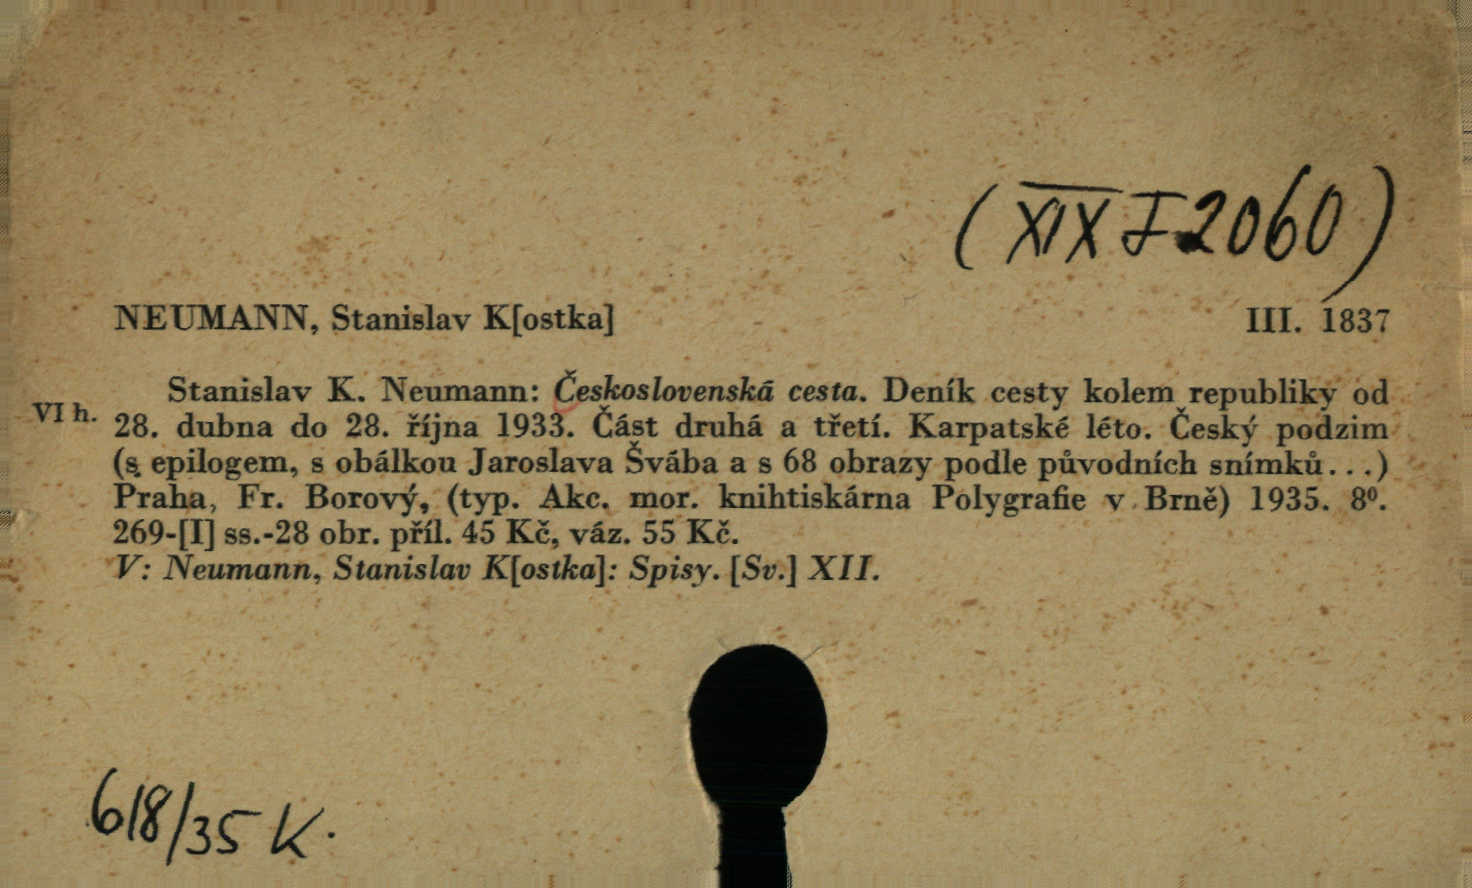 (XIX I 2060)
NEUMANN, Stanislav K[ostka] III. 1837
Stanislav K. Neumann: Československá cesta. Deník cesty kolem republiky od
VI h. 28. dubna do 28. října 1933. Část druhá a třetí. Karpatské léto. Český podzim
(s epilogem, s obálkou Jaroslava Švába a s 68 obrazy podle původních snímků...)
Praha, Fr. Borový, (typ. Akc. mor. knihtiskárna Polygrafie v Brně) 1935. 8⁰.
269-[I] ss.-28 obr. příl. 45 Kč, váz. 55 Kč.
V: Neumann, Stanislav K[ostka]: Spisy. [Sv.] XII.
618/35 K.